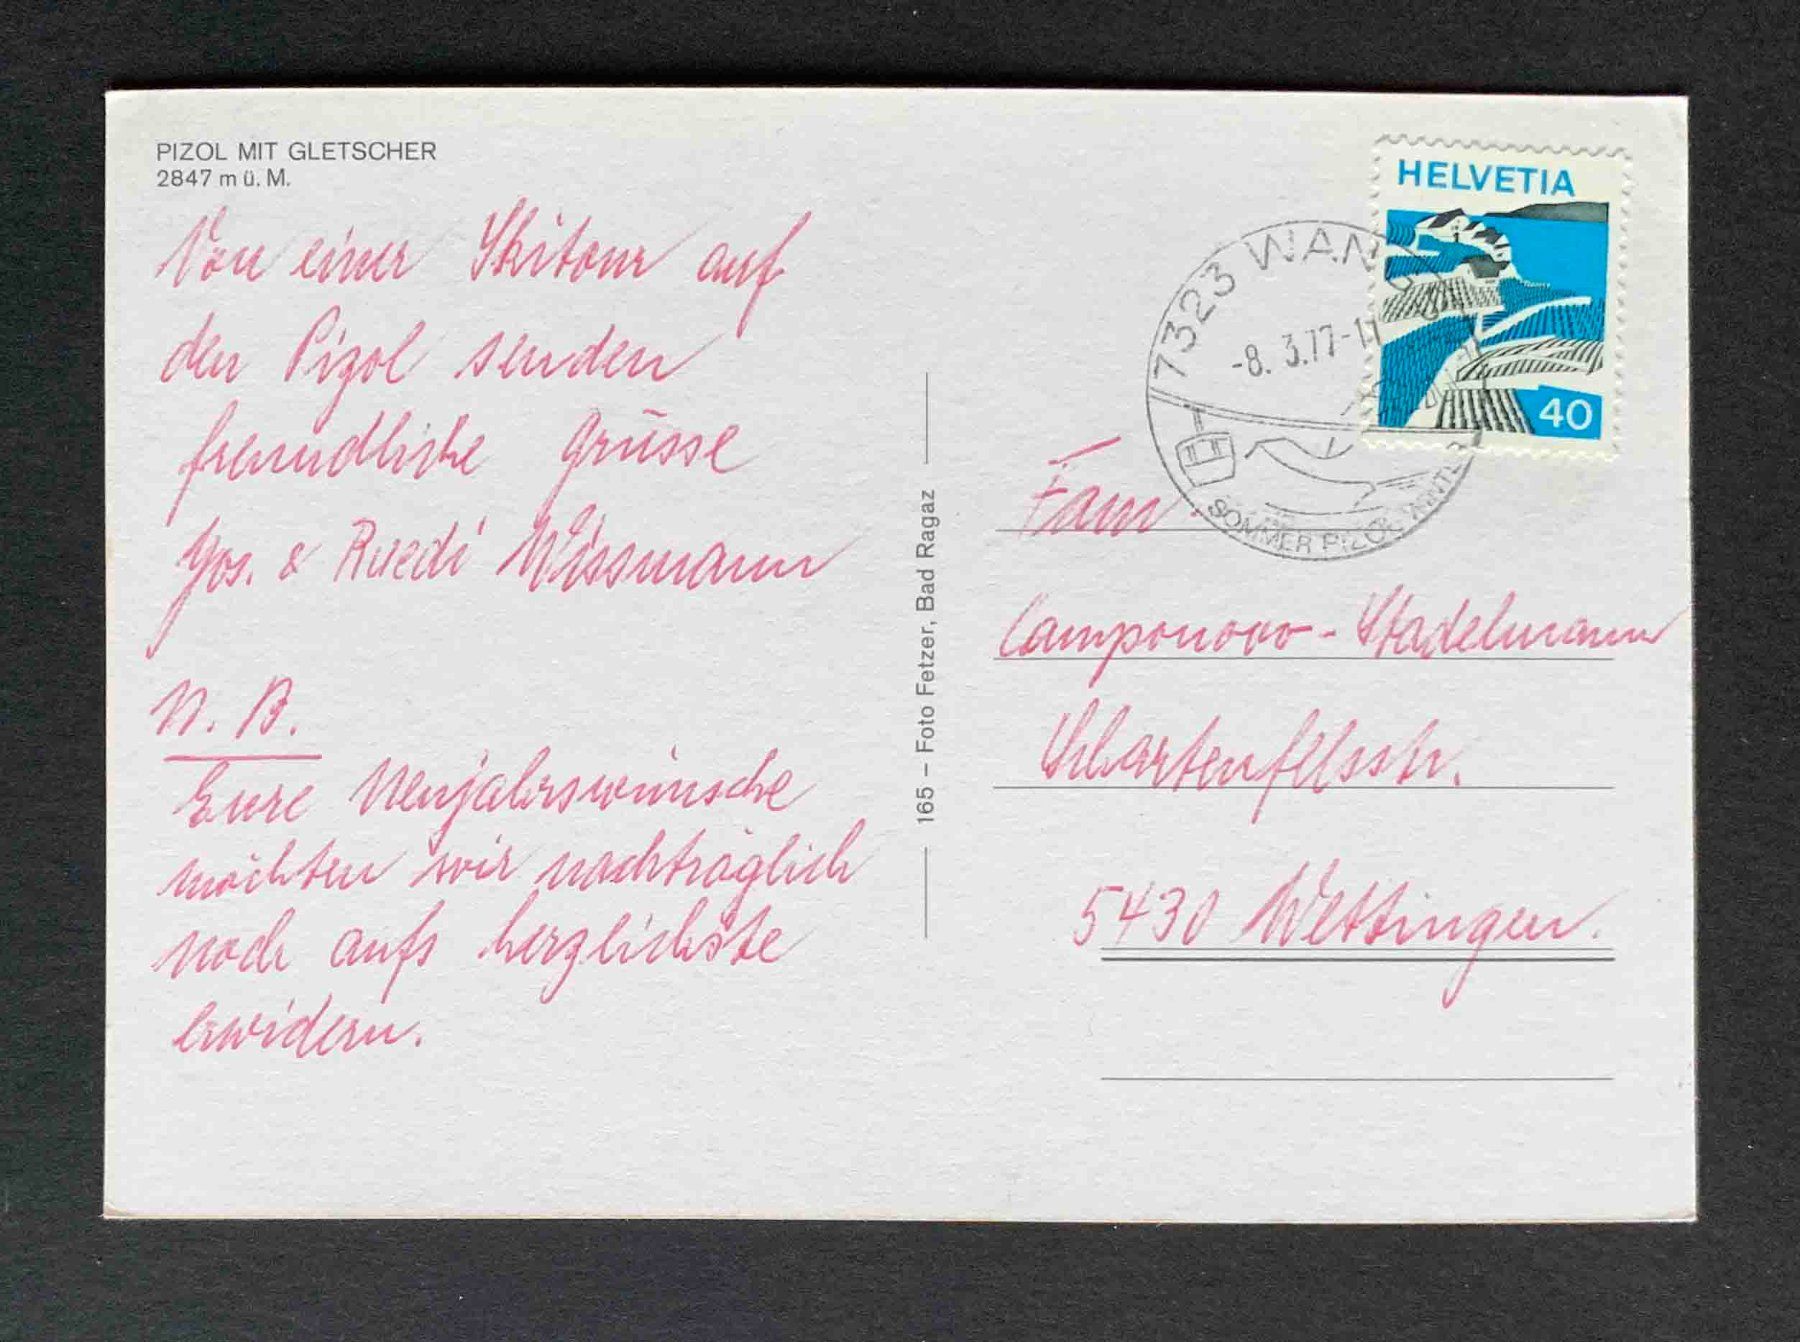 PIZOL MIT GLETSCHER
2847 m ü. M.
Von einer Skitour auf
den Pizol senden
freundliche Grüsse
Jos. & Ruedi Wissmann
N. B.
Eure Neujahrswünsche
möchten wir nachträglich
noch aufs herzlichste
erwidern.
165 – Foto Fetzer, Bad Ragaz
HELVETIA
40
7323 WAN
-8. 3.77-11
SOMMER PIZOL WINTER
Fam.
Camponovo-Stadelmann
Schartenfelsstr.
5430 Wettingen.